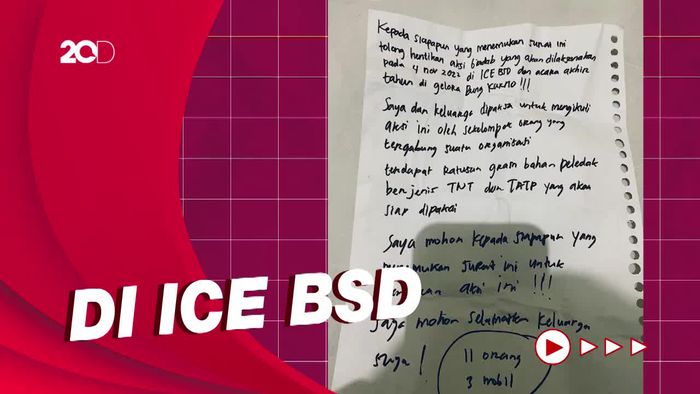 20D
Kepada siapapun yang menemukan surat ini
tolong hentikan aksi biadab yang akan dilaksanakan
pada 4 nov 2022 di ICE BSD dan acara akhir
tahun di gelora Bung Karno !!!
Saya dan keluarga dipaksa untuk mengikuti
aksi ini oleh sekelompok orang yang
tergabung suatu organisasi
terdapat ratusan gram bahan peledak
berjenis TNT dan TATP yang akan
siap dipakai
Saya mohon kepada siapapun yang
menemukan surat ini untuk
aksi ini !!!
saya mohon selamatkan keluarga
saya !
11 orang
3 mobil
DI ICE BSD